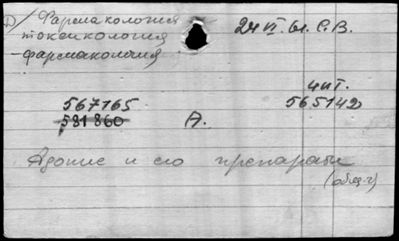 D/ Фармакология
токсикология
-фармакология
24 VI. 61. С.В.
4 шт.
567165
565142
581860
А.
Адонис и его препараты
(общ.ч)